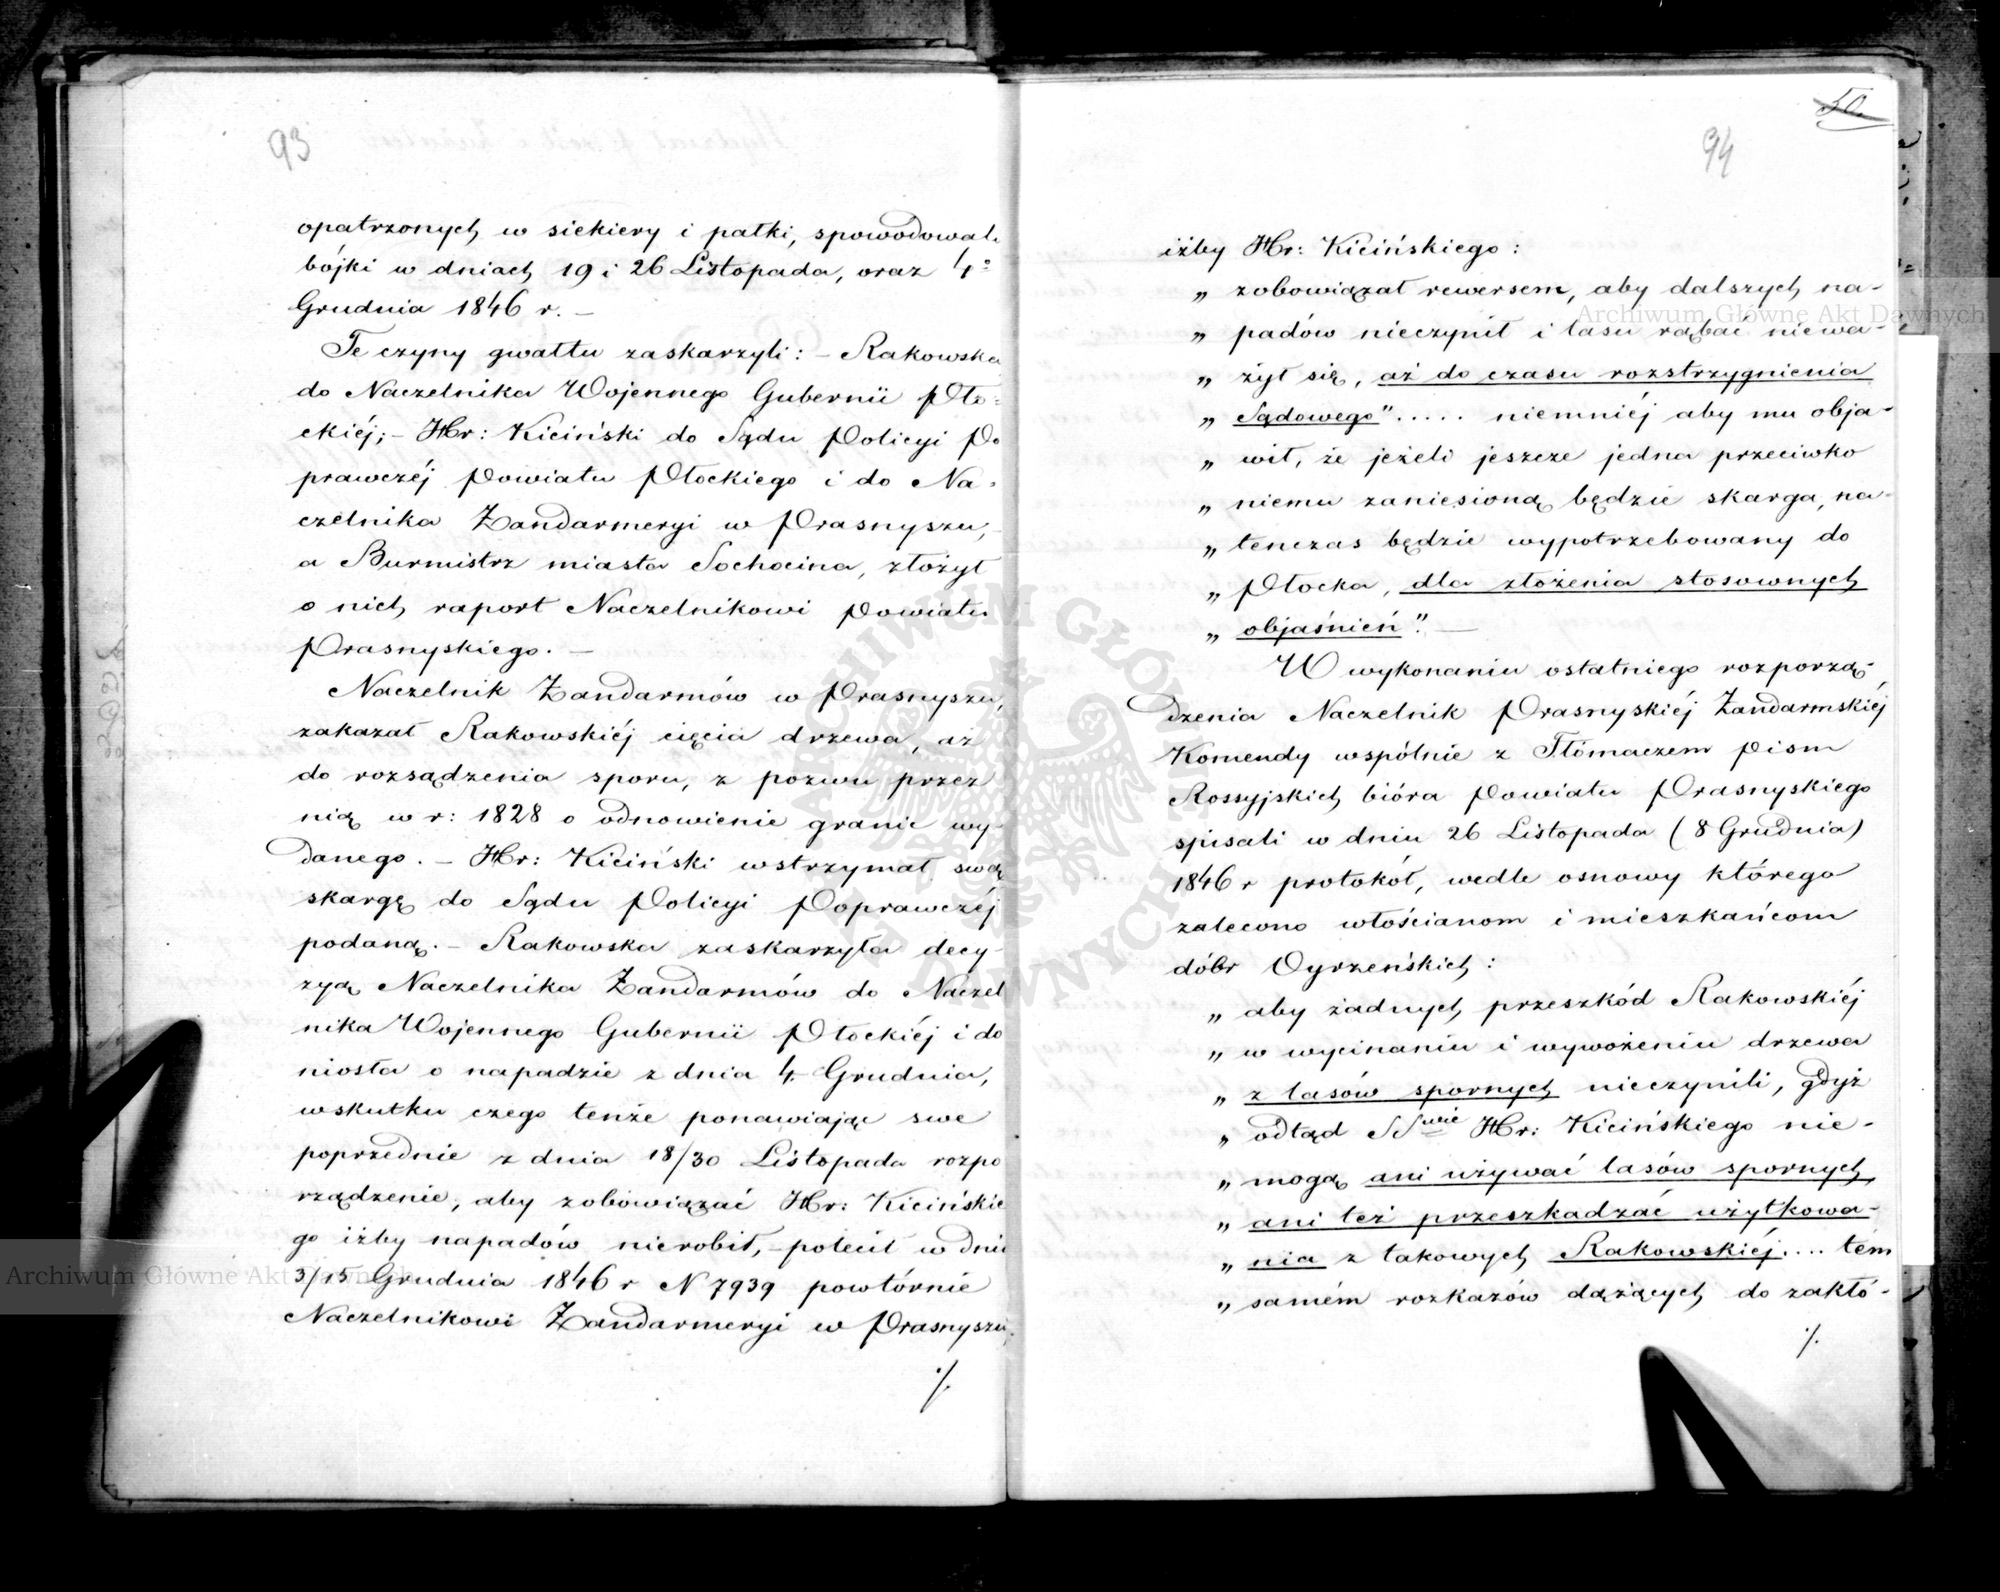 93
opatrzonych w siekiery i pałki, spowodował
bójki w dniach 19 i 26 Listopada, oraz 4º
Grudnia 1846 r. –
Te czyny gwałtu zaskarzyli: – Rakowska
do Naczelnika Wojennego Gubernii Pło-
ckiéj; – Hr: Kiciński do Sądu Policyi Po
prawczéj Powiatu Płockiego i do Na-
czelnika Żandarmeryi w Prasnyszu, –
a Burmistrz miasta Sochocina, złożył
o nich raport Naczelnikowi Powiatu
Prasnyskiego. –
Naczelnik Żandarmów w Prasnyszu,
zakazał Rakowskiéj cięcia drzewa, aż
do rozsądzenia sporu, z pozwu przez
nią w r: 1828 o odnowienie granic wy-
danego. – Hr: Kiciński wstrzymał swą
skargę do Sądu Policyi Poprawczéj
podaną. – Rakowska zaskarzyła decy-
zyą Naczelnika Żandarmów do Naczel
nika Wojennego Gubernii Płockiéj i do
niosła o napadzie z dnia 4. Grudnia,
wskutku czego tenże ponawiając swe
poprzednie z dnia 18/30 Listopada rozpo
rządzenie, aby zobowiązać Hr: Kicińskie
go iżby napadów nierobił, – polecił w dniu
3/15 Grudnia 1846 r N 7939 powtórnie
Naczelnikowi Żandarmeryi w Prasnyszu,
./.
50.
94
iżby Hr: Kicińskiego:
„ zobowiązał rewersem, aby dalszych na-
„ padów nieczynił i lasu rąbać niewa-
„ żył się, aż do czasu rozstrzygnienia
„ Sądowego" ..... niemniéj aby mu obja-
„ wił, że jeżeli jeszcze jedna przeciwko
„ niemu zaniesioną będzie skarga, na-
„ tenczas będzie wypotrzebowany do
„ Płocka, dla złożenia stosownych
„ objaśnień". –
W wykonaniu ostatniego rozporzą-
dzenia Naczelnik Prasnyskiéj Żandarmskiéj
Komendy wspólnie z Tłómaczem Pism
Rossyjskich bióra Powiatu Prasnyskiego
spisali w dniu 26 Listopada (8 Grudnia)
1846 r protokół, wedle osnowy którego
zalecono włościanom i mieszkańcom
dóbr Oyrzeńskich:
„ aby żadnych przeszkód Rakowskiéj
„ w wycinaniu i wywożeniu drzewa
„ z lasów spornych nieczynili, gdyż
„ odtąd SSwie Hr: Kicińskiego nie-
„ mogą ani używać lasów spornych,
„ ani też przeszkadzać użytkowa-
„ nia z takowych Rakowskiéj .... tem
„ samém rozkazów dążących do zakłó-
./.
Archiwum Główne Akt Dawnych
Archiwum Główne Akt Dawnych
ARCHIWUM GŁÓWNE AKT DAWNYCH